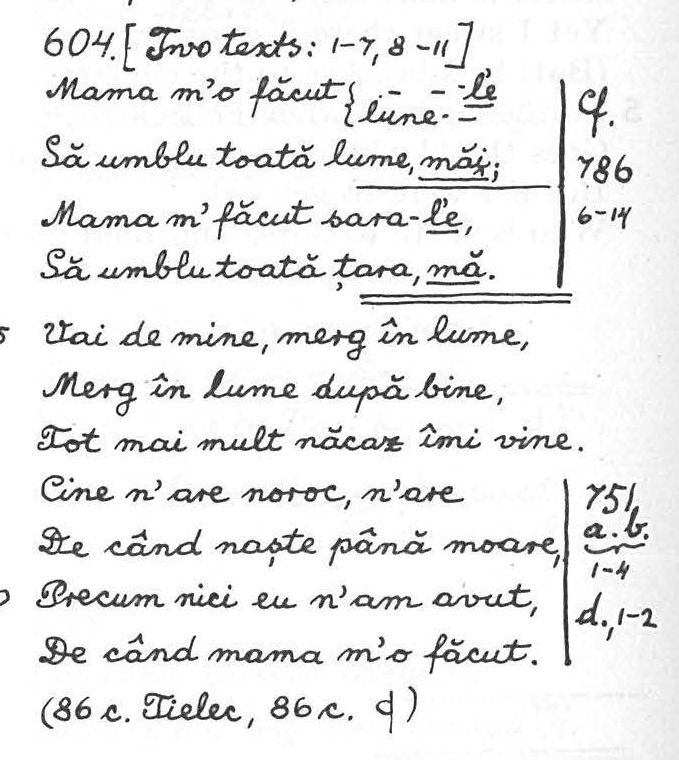 604. [Two texts: 1-7, 8-11]
Mama m'o făcut { – – – -l'e
lune. =
Cf.
Să umblu toată lume, măi;
786
Mama m' făcut sara-l'e,
6-14
Să umblu toată țara, mă.
5 Vai de mine, merg în lume,
Merg în lume după bine,
Tot mai mult năcaz îmi vine.
Cine n'are noroc, n'are
751,
De când naște până moare,
a. b.
1-4
Precum nici eu n'am avut,
d., 1-2
De când mama m'o făcut.
(86 c. Tielec, 86 c. d)